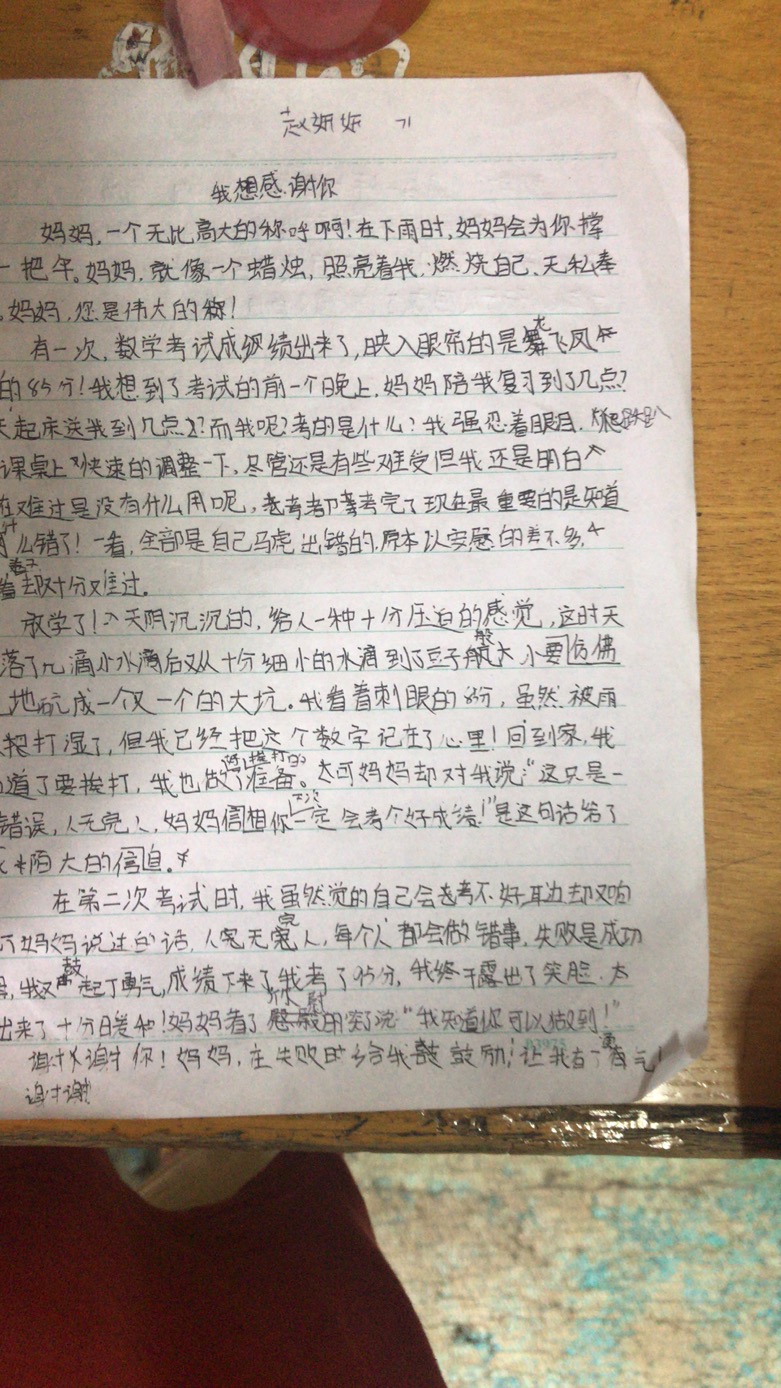 赵妍妍 71
我想感谢你
妈妈,一个无比高大的称呼啊!在下雨时,妈妈会为你撑
一把伞。妈妈,就像一个蜡烛,照亮着我,燃烧自己、无私奉
。妈妈,您是伟大的!
有一次,数学考试成绩出来了,映入眼帘的是龙飞凤
的85分!我想到了考试的前一个晚上,妈妈陪我复习到了几点?
天起床送我到几点?而我呢?考的是什么?我强忍着眼泪.
课桌上快速的调整一下,尽管还是有些难受但我还是明白
在难过是没有什么用呢,考都考完了现在最重要的是知道
什么错了!一看,全部是自己马虎出错的,原本以安慰的差不多,
看卷子却十分难过。
放学了!天阴沉沉的,给人一种十分压迫的感觉,这时天
落了几滴小水滴后又从十分细小的水滴到了豆子般大,小雨仿佛
地砸成一个又一个的大坑。我看着刺眼的85分,虽然被雨
打湿了,但我已经把这个数字记在了心里!回到家,我
知道了要挨打,我也做了准备。可妈妈却对我说:“这只是一
错误,人无完人,妈妈信相你下次一定会考个好成绩!”是这句话给了
大的信息。
在第二次考试时,我虽然觉的自己会考不好,耳边却又响
了妈妈说过的话,人无完人,每个人都会做错事,失败是成功
,我又鼓起了勇气,成绩下来了我考了95分,我终于露出了笑脸.太
出来了十分暖和!妈妈看了欣慰的笑了说“我知道你可以做到!”
谢谢你!妈妈,在失败时给我鼓励!让我有了勇气!
谢谢